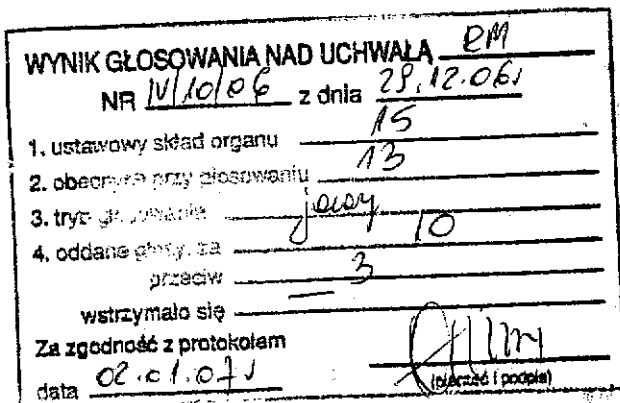 WYNIK GŁOSOWANIA NAD UCHWAŁĄ RM
NR IV/10/06 z dnia 29.12.06r
1. ustawowy skład organu 15
2. obecnych przy głosowaniu 13
3. tryb głosowania jawny
4. oddane głosy: za 10
przeciw 3
wstrzymało się —
Za zgodność z protokołem
data 02.01.07r
(pieczęć i podpis)